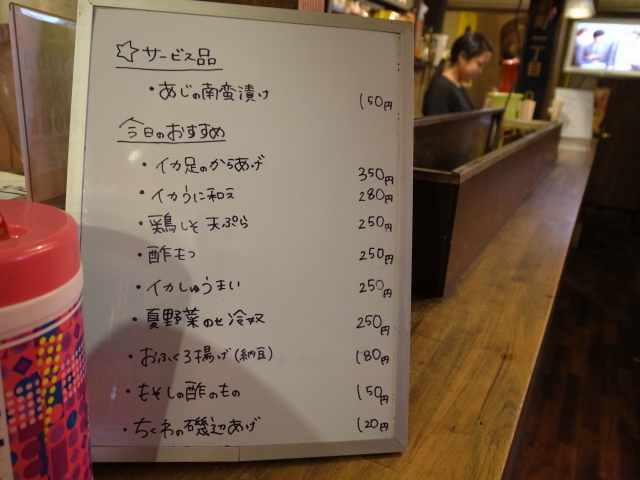 ☆サービス品
・あじの南蛮漬け 150円
今日のおすすめ
・イカ足のからあげ 350円
・イカうに和え 280円
・鶏しそ天ぷら 250円
・酢もつ 250円
・イカしゅうまい 250円
・夏野菜のせ冷奴 250円
・おふくろ揚げ(納豆) 180円
・もぞくの酢のもの 150円
・ちくわの磯辺あげ 120円
丁目